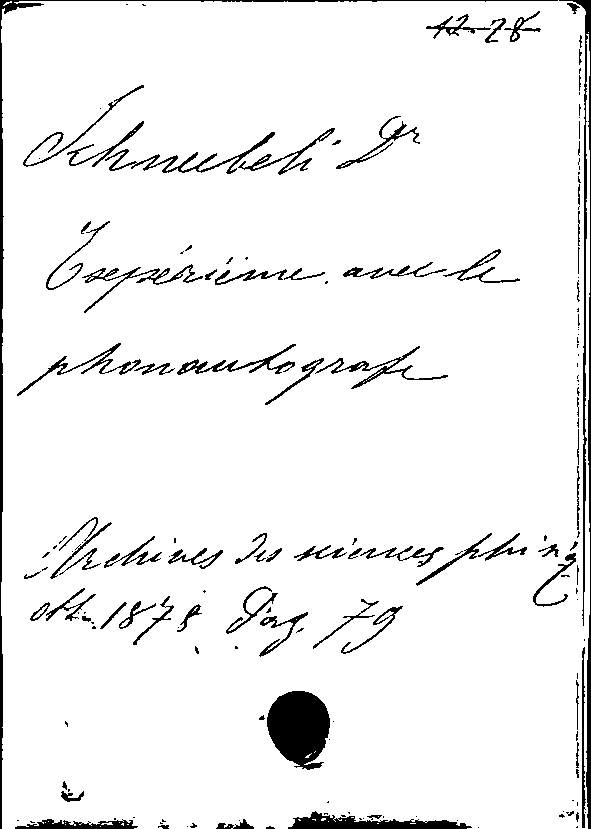 12-28
Schneebeli Dr
Expérième avec le
phonautografe
Archives des sciences phi
1878 Pag. 79